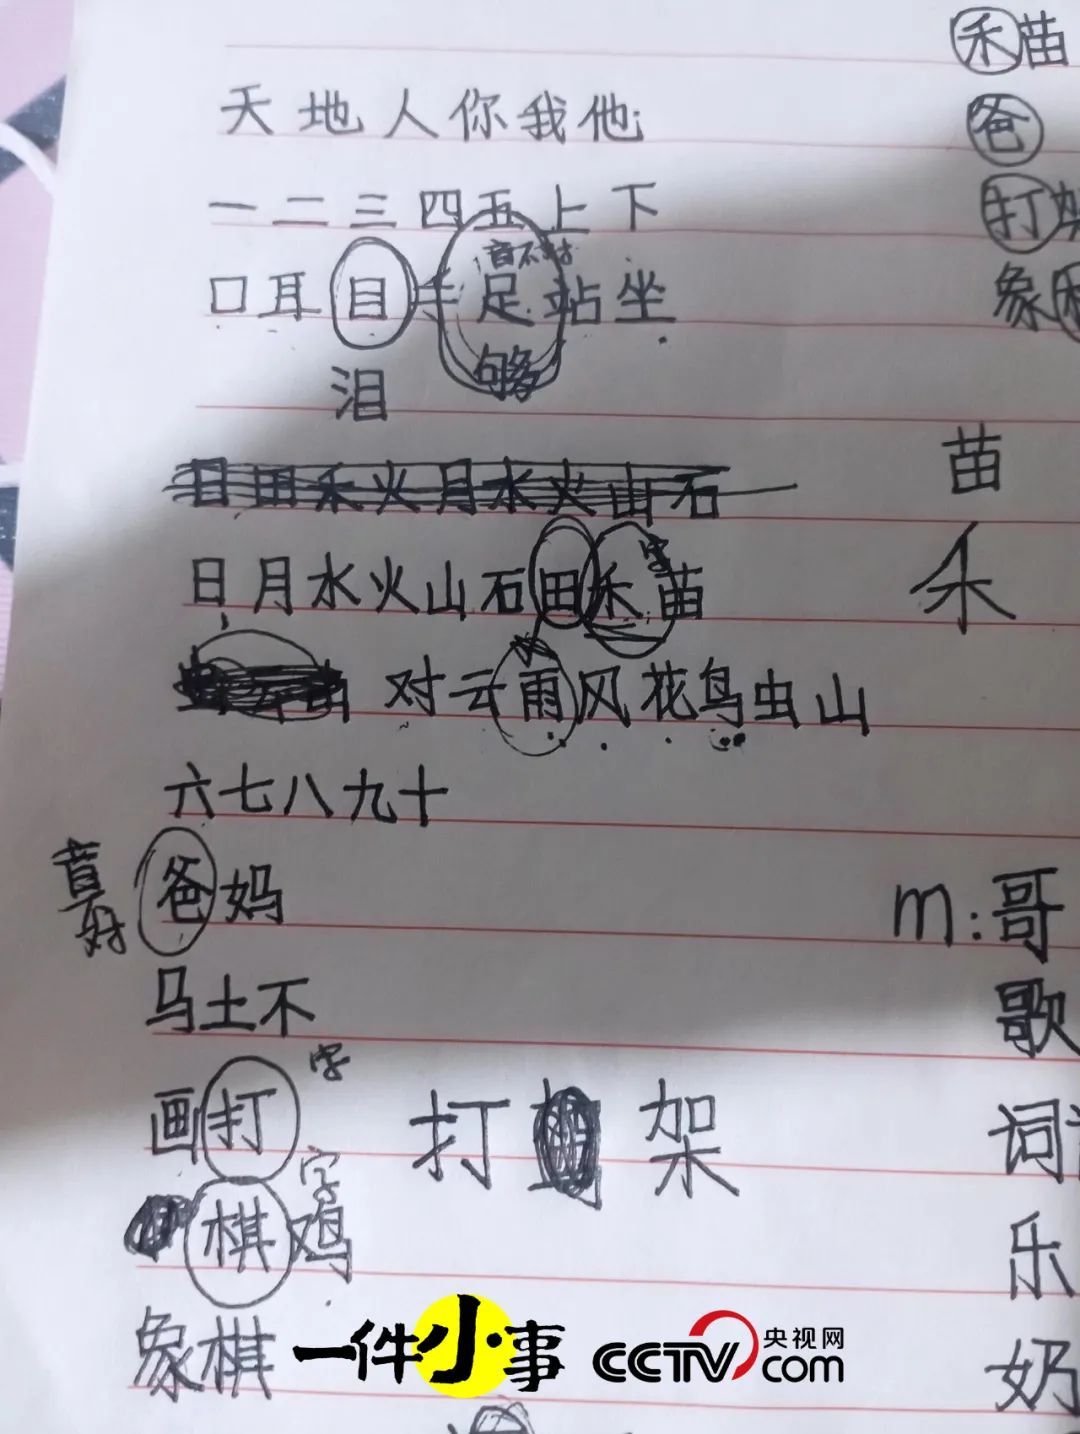 禾苗
天地人你我他
爸
一二三四五上下
打架
音不对
口耳目手足站坐
象
够
泪
日田禾火月水火山石
苗
字
日月水火山石田禾苗
禾
对云雨风花鸟虫山
六七八九十
音
好
爸妈
m:哥
马土不
歌
字
画打
打 架
词
字
棋鸡
乐
象棋
奶
一件小事
CCTV.com 央视网